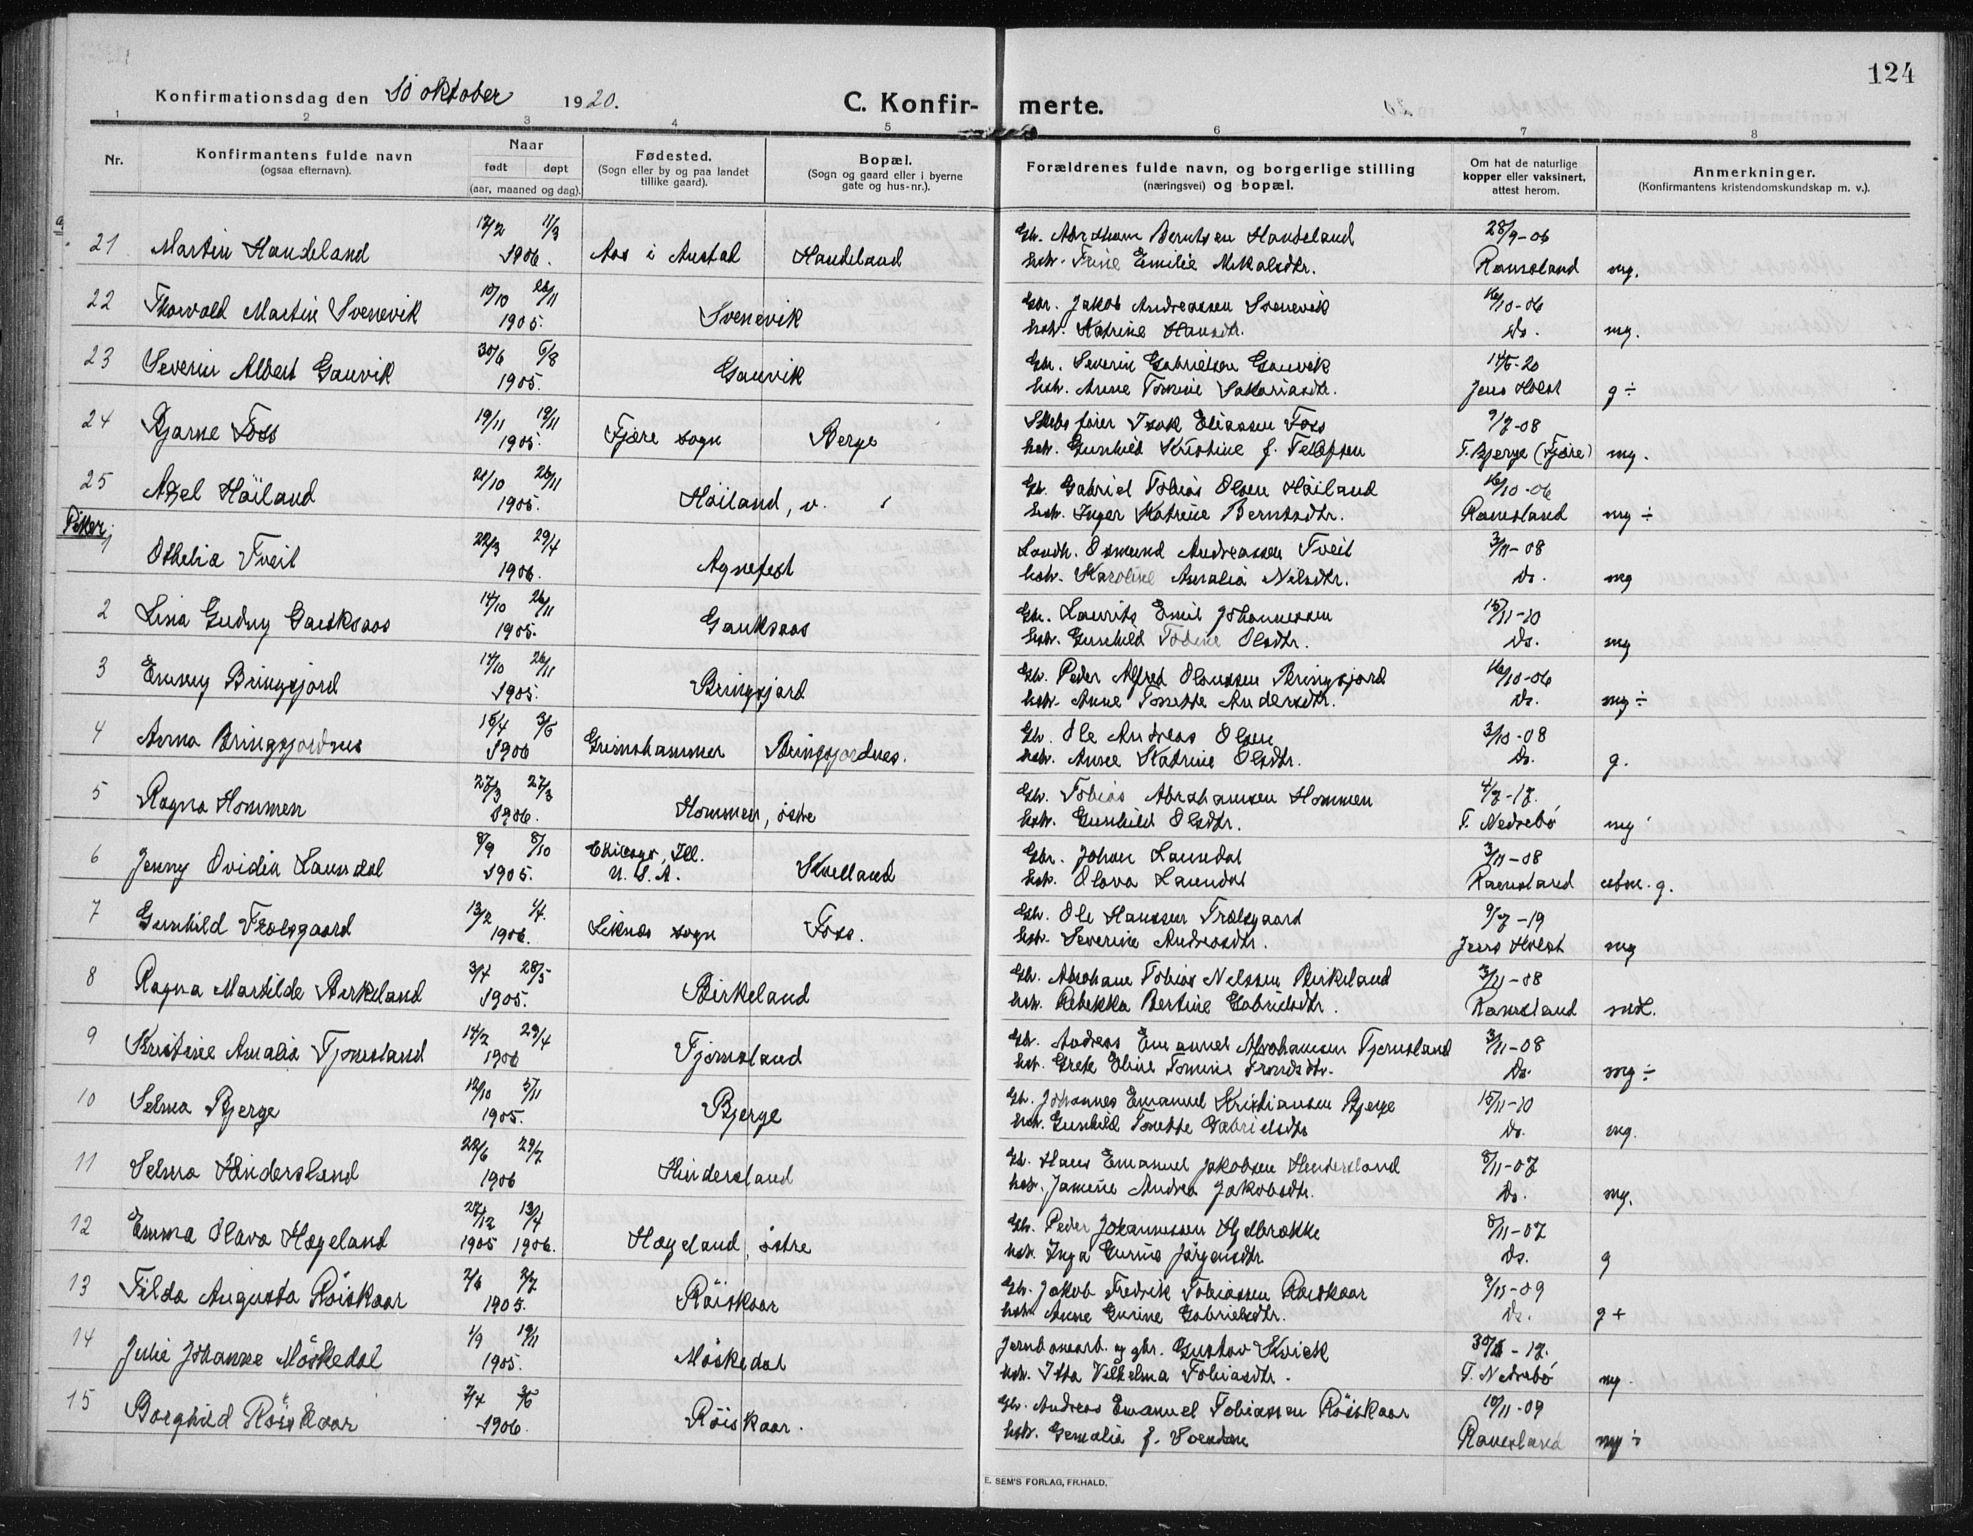 124
Konfirmationsdag den 10 oktober 1920.
C. Konfirmerte.
1 2 3 4 5 6 7 8
Nr. Konfirmantens fulde navn (ogsaa efternavn). Naar født døpt (aar, maaned og dag). Fødested. (Sogn eller by og paa landet tillike gaard). Bopæl. (Sogn og gaard eller i byerne gate og hus-nr.). Forældrenes fulde navn, og borgerlige stilling (næringsvei) og bopæl. Om hat de naturlige kopper eller vaksinert, attest herom. Anmerkninger. (Konfirmantens kristendomskundskap m. v.).
21 Martin Haudeland 12/2 11/3 1906. Aas i Austad Haudeland Gb. Abraham Berntsen Haudeland 28/9-06
hstr. Trine Emilie Mikalsdtr. Ramsland mg.
22 Thorvald Martin Svenevik 10/10 26/11 1905. Svenevik Gbr. Jakob Andreassen Svenevik 16/10-06
hstr. Katrine Hansdtr. Do. mg.
23 Severin Albert Gauvik 30/6 6/8 1905. Gauvik Gbr. Severin Gabrielsen Gauvik 14/5-20
hstr. Anne Tomine Sakariasdtr. Jens Holst g ÷
24 Bjarne Foss 19/11 1905. Fjære sogn Berge Skibsfører Isak Eliassen Foss 9/7-08
hstr. Gunhild Kristine f. Tellefsen T. Bjerge (Fjære) mg.
25 Axel Høiland 21/10 26/11 1905. Høiland, v. Gb. Gabriel Tobias Olsen Høiland 16/10-06
hstr. Inger Katrine Berntsdtr. Ramsland mg ÷
Piker
1 Othelie Tveit 22/3 29/4 1906. Agnefest Landh. Osmund Andreassen Tveit 3/11-08
hstr. Karoline Amalia Nilsdtr. Do. mg
2 Lina Gudny Gauksaas 14/10 26/11 1905. Gauksaas Gbr. Laurits Emil Johannessen 15/11-10
hstr. Gunhild Todine Olsdtr. Do. mg
3 Emmy Bringsjord 17/10 26/11 1905. Bringsjord Gb. Peder Alfred Olaussen Bringsjord 16/10-06
hstr. Anne Tonette Andersdtr. Do. mg ÷
4 Anna Bringsjordnes 15/4 3/5 1906 Grimshammer Bringsjordnes. Gb. Ole Andreas Olsen 3/10-08
hstr. Anne Katrine Olsdtr. Do. g.
5 Ragna Hommen 27/3 1906. Hommen, østre Gb. Tobias Abrahamsen Hommen 4/7-17.
hstr. Gunhild Olsdtr. T. Nedrebö mg
6 Jenny Ovidia Laundal 8/9 8/10 1905. Chicago, Ill. U.S.A. Skoland Gbr. Johan Laundal 3/11-08
hstr. Olava Laundal Ramsland g.
7 Gunhild Trælsgaard 13/2 1/4 1906. Liknes sogn Foss. Gb. Ole Hanssen Trælsgaard 9/7-19
hstr. Severine Andreasdtr. Jens Holst mg
8 Ragna Matilde Birkeland 3/4 28/5 1905. Birkeland Gb. Abraham Tobias Nelssen Birkeland 3/11-08
hstr. Rebekka Bertine Gabrielsdtr. Ramsland
9 Kristine Amalia Tjomsland 14/2 29/4 1906 Tjomsland Gb. Andreas Emanuel Abrahamsen Tjomsland 3/11-08
hst. Grete Eline Tomine Trondsdtr. Do. mg ÷
10 Selma Bjerge 12/10 5/11 1905. Bjerge Gb. Johannes Emanuel Kristiansen Bjerge 15/11-10
hst. Gunhild Tonette Gabrielsdtr Do. mg.
11 Selma Hindersland 22/6 29/7 1906 Hindersland Gb. Hans Emanuel Jakobsen Hindersland 8/11-07
hstr. Jamine Andrea Jakobsdtr. Do. mg.
12 Emma Olava Hægeland 1905 13/4 1906. Hægeland, østre Gb. Peder Johannessen 8/11-07
hstr. Inga Gurine Jørgensdtr. Do. g
13 Tilda Augusta Röiskaar 2/6 2/7 1905. Röiskaar Gb. Jakob Fredrik Tobiassen Röiskaar 9/11-09
hstr. Anne Gurine Gabrielsdtr. Do. g +
14 Julie Johanne Möskedal 1/9 19/11 1905. Möskedal Jernbanearb. og gbr. Gustav Kvick
hstr. Itta Vilhelma Tobiasdtr. T. Nedrebö mg.
15 Borghild Röiskaar 2/4 1906. Röiskaar. Gb. Andreas Emanuel Tobiassen Röiskaar 10/11-09
hstr. Gemalia f. Svendsen Ramsland mg ÷
E. SEM'S FORLAG, FR.HALD.